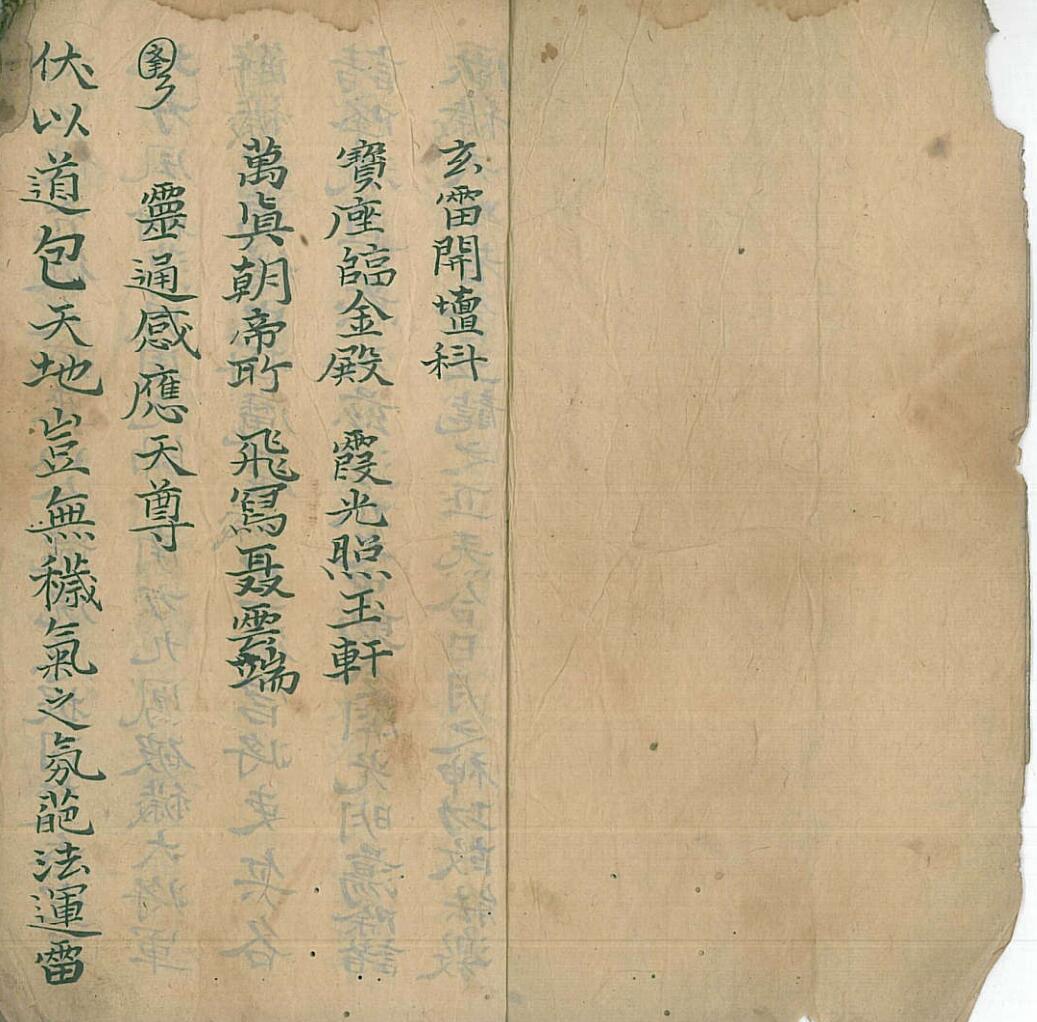 玄雷開壇科
寶座臨金殿　霞光照玉軒
萬真朝帝所　飛舄聂雲端
靈通感應天尊
伏以道包天地豈無穢氣之氛葩法運雷